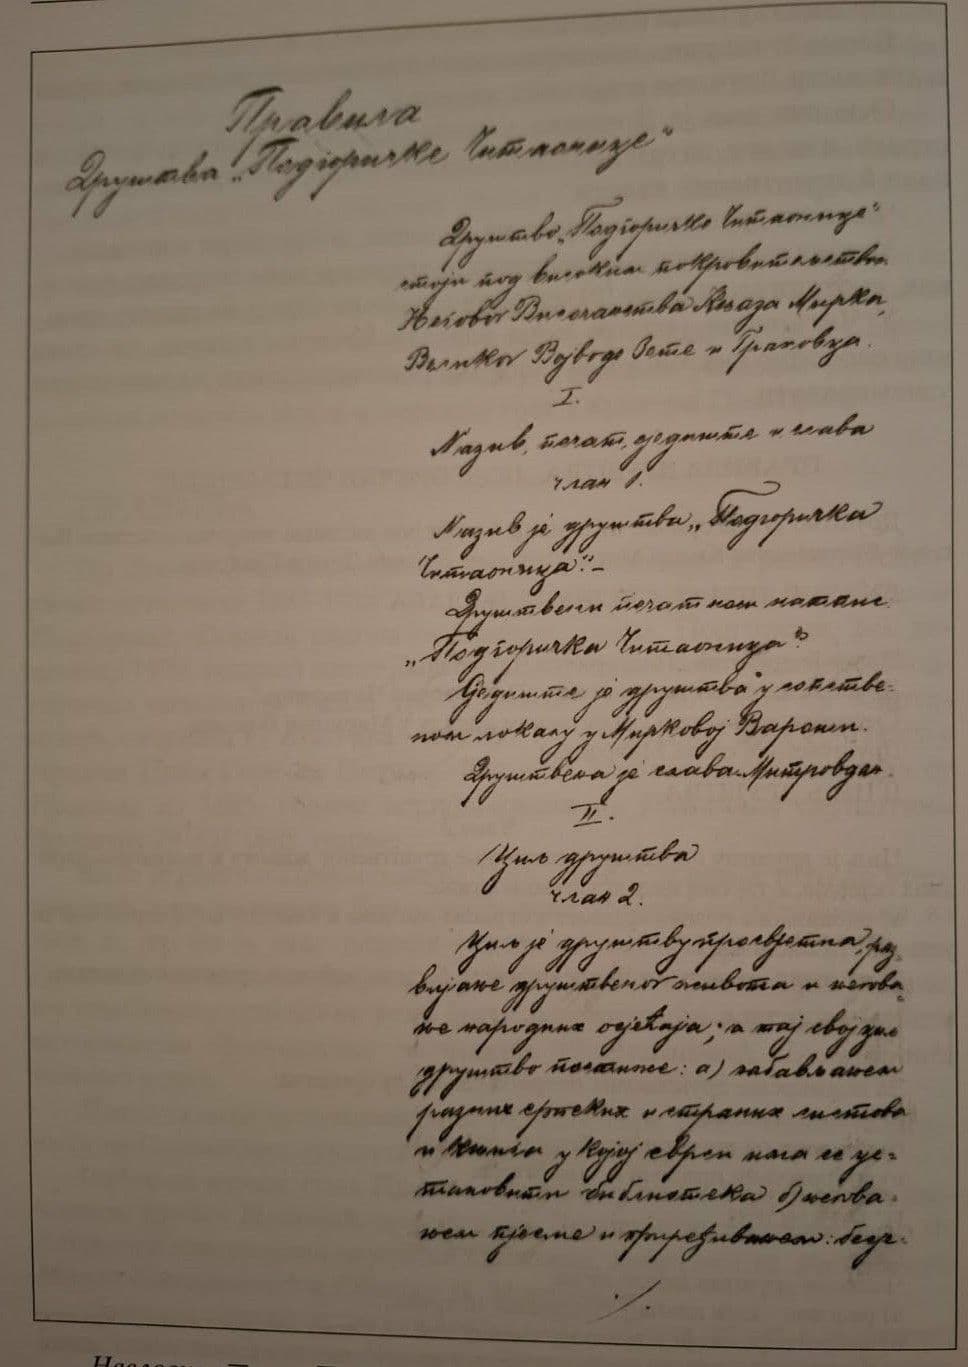 Правила
Друштва „Подгоричке Читаонице“
Друштво „Подгоричка Читаоница“
стоји под високим покровитељством
Његовог Височанства Књаза Мирка,
Великог Војводе Зете и Грахова.
I.
Назив, печат, сједиште и слава
члан 1.
Назив је друштва „Подгоричка
Читаоница“.–
Друштвени печат носи натпис
„Подгоричка Читаоница“.
Сједиште је друштва у сопстве-
ном локалу у Мирковој Вароши.
Друштвена је слава Митровдан.
II.
Циљ друштва
члан 2.
Циљ је друштву просвјетна, раз-
вијање друштвеног живота и његова-
ње народних осјећаја; а тај свој циљ
друштво постиже: а) набављањем
разних српских и страних листова
и књига у којој сврси има се ус-
тановити библиотека б) његова-
њем пјесме и приређивањем: бесје-
./.